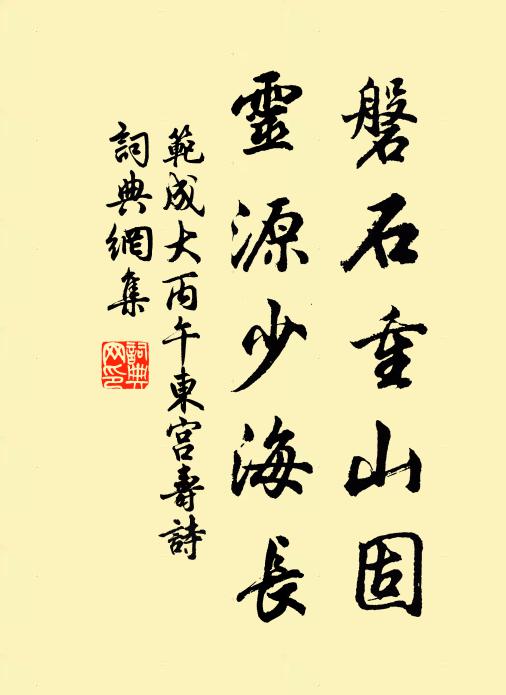 磐石重山固
靈源少海長
範成大丙午東宮壽詩
詞典網集
詞典
网印